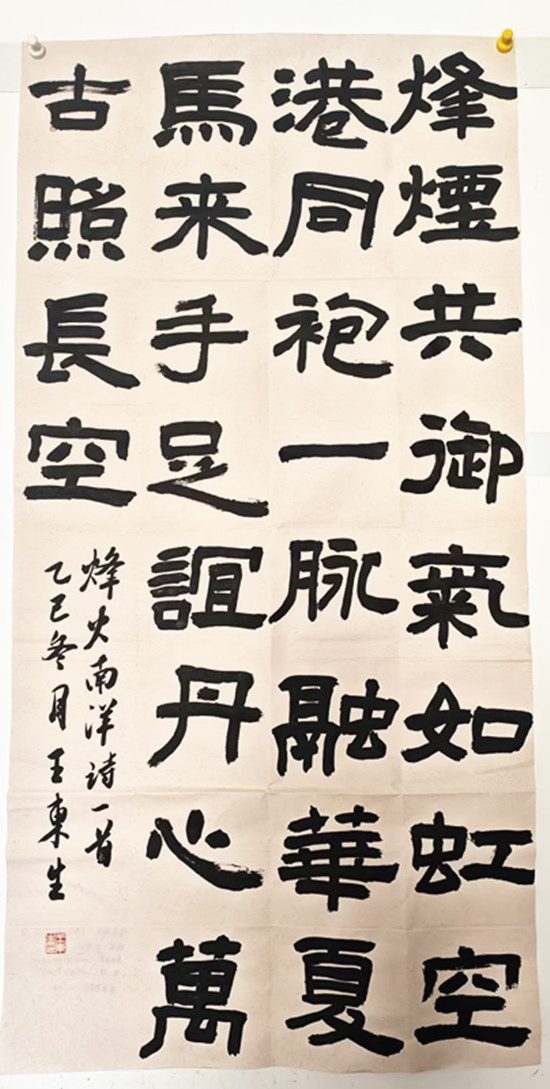 烽煙共御氣如虹空
港同袍一脉融華夏
馬来手足誼丹心萬
古照長空
烽火南洋诗一首
乙巳冬月王東生